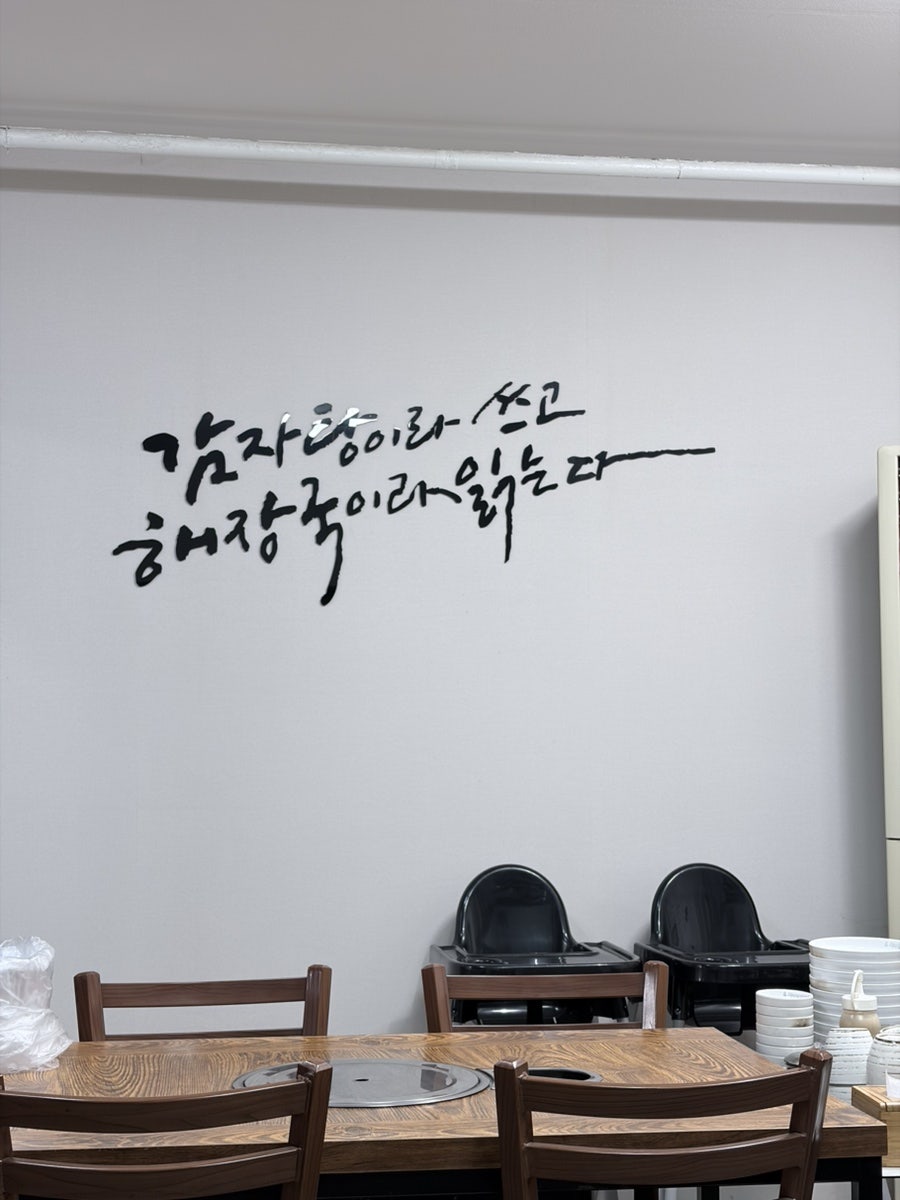 감자탕이라 쓰고
해장국이라 읽는다